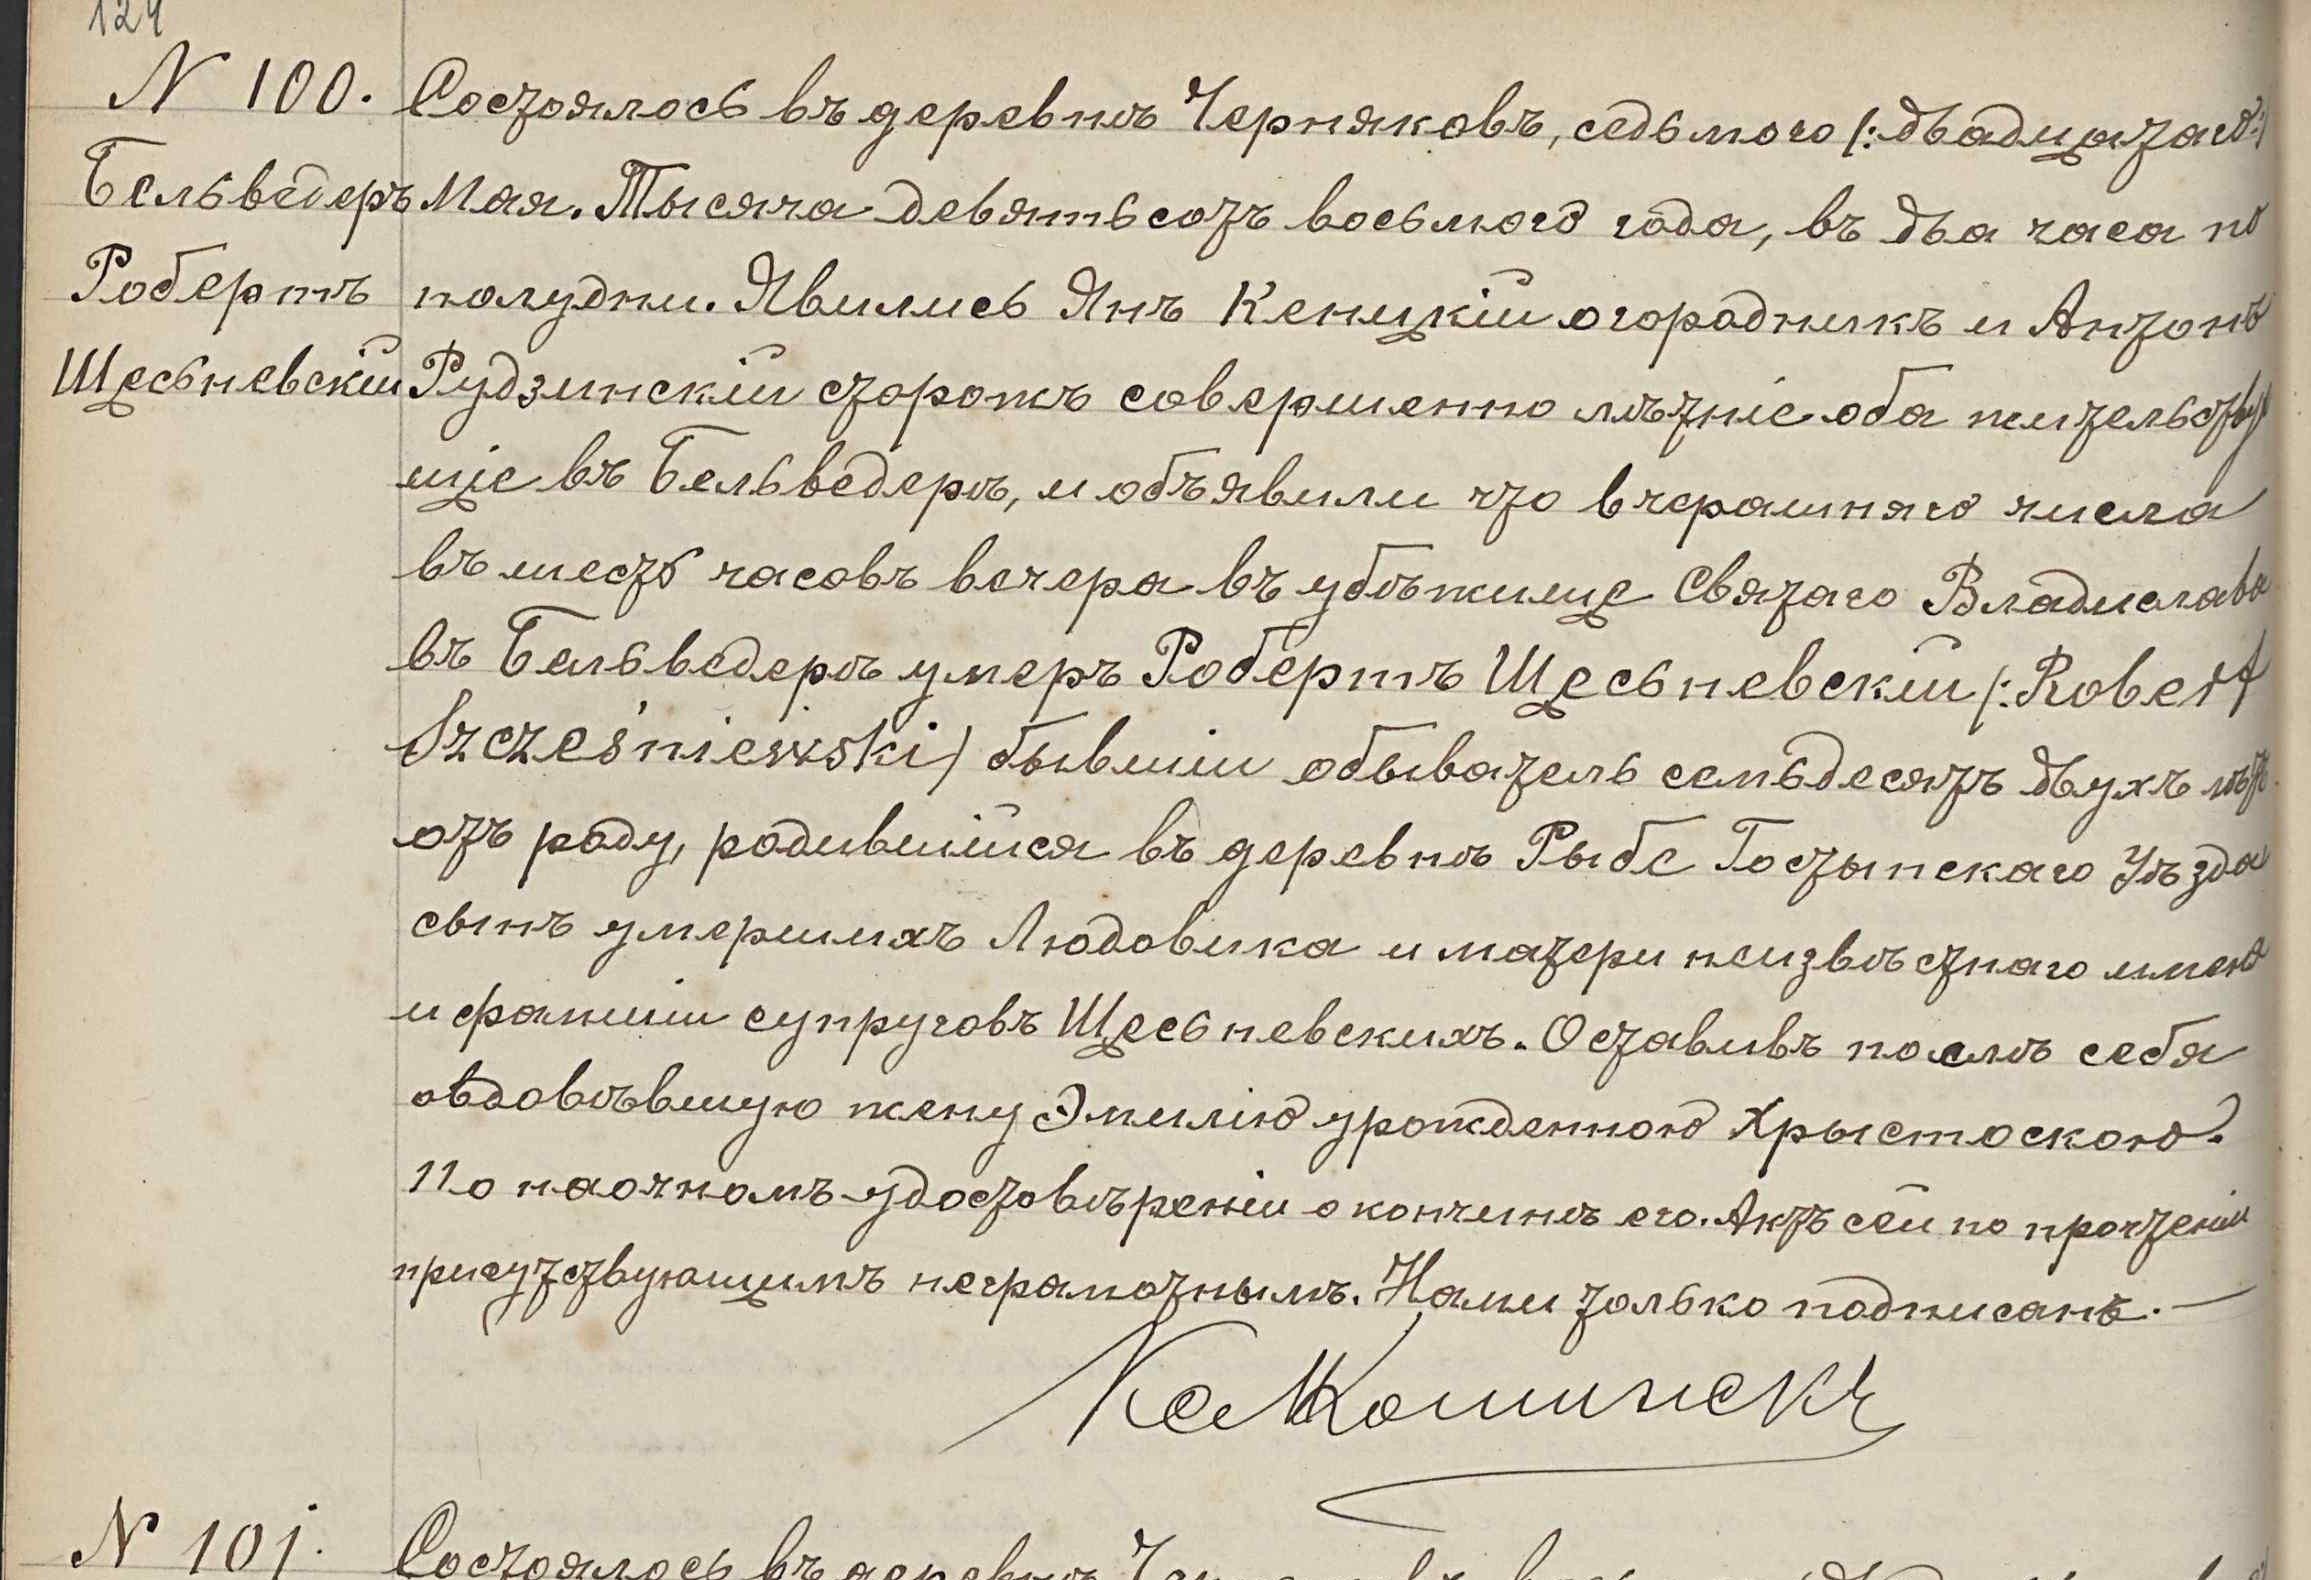 124
N 100. Состоялось въ деревнѣ Черняковъ, седьмого /:двадцатаго:/
Бельведеръ Мая. Тысяча девятьсотъ восьмого года, въ два часа по
Робертъ полудни. Явились Янъ Кеницкій огородникъ и Антонъ
Щесьневскій Рудзинскій сторожъ совершенно лѣтніе оба жительству
щіе въ Бельведерѣ, и объявили что вчерашняго числа
въ шесть часовъ вечера въ убѣжище Святаго Владислава
въ Бельведерѣ умеръ Робертъ Щесьневскій /: Robert
Szcześniewski/ бывшій обыватель семьдесятъ двухъ лѣтъ
отъ роду, родившійся въ деревнѣ Рыбе Гостынскаго Уѣзда
сынъ умершихъ Людовика и матери неизвѣстнаго имени
и фамиліи супруговъ Щесьневскихъ. Оставивъ послѣ себя
овдовѣвшую жену Эмилію урожденною Хрыстоскою.
По наочномъ удостовѣреніи о кончинѣ его. Актъ сей по прочтеніи
присутствующимъ неграмотнымъ. Нами только подписанъ. —
N 101.
Состоялось въ деревнѣ